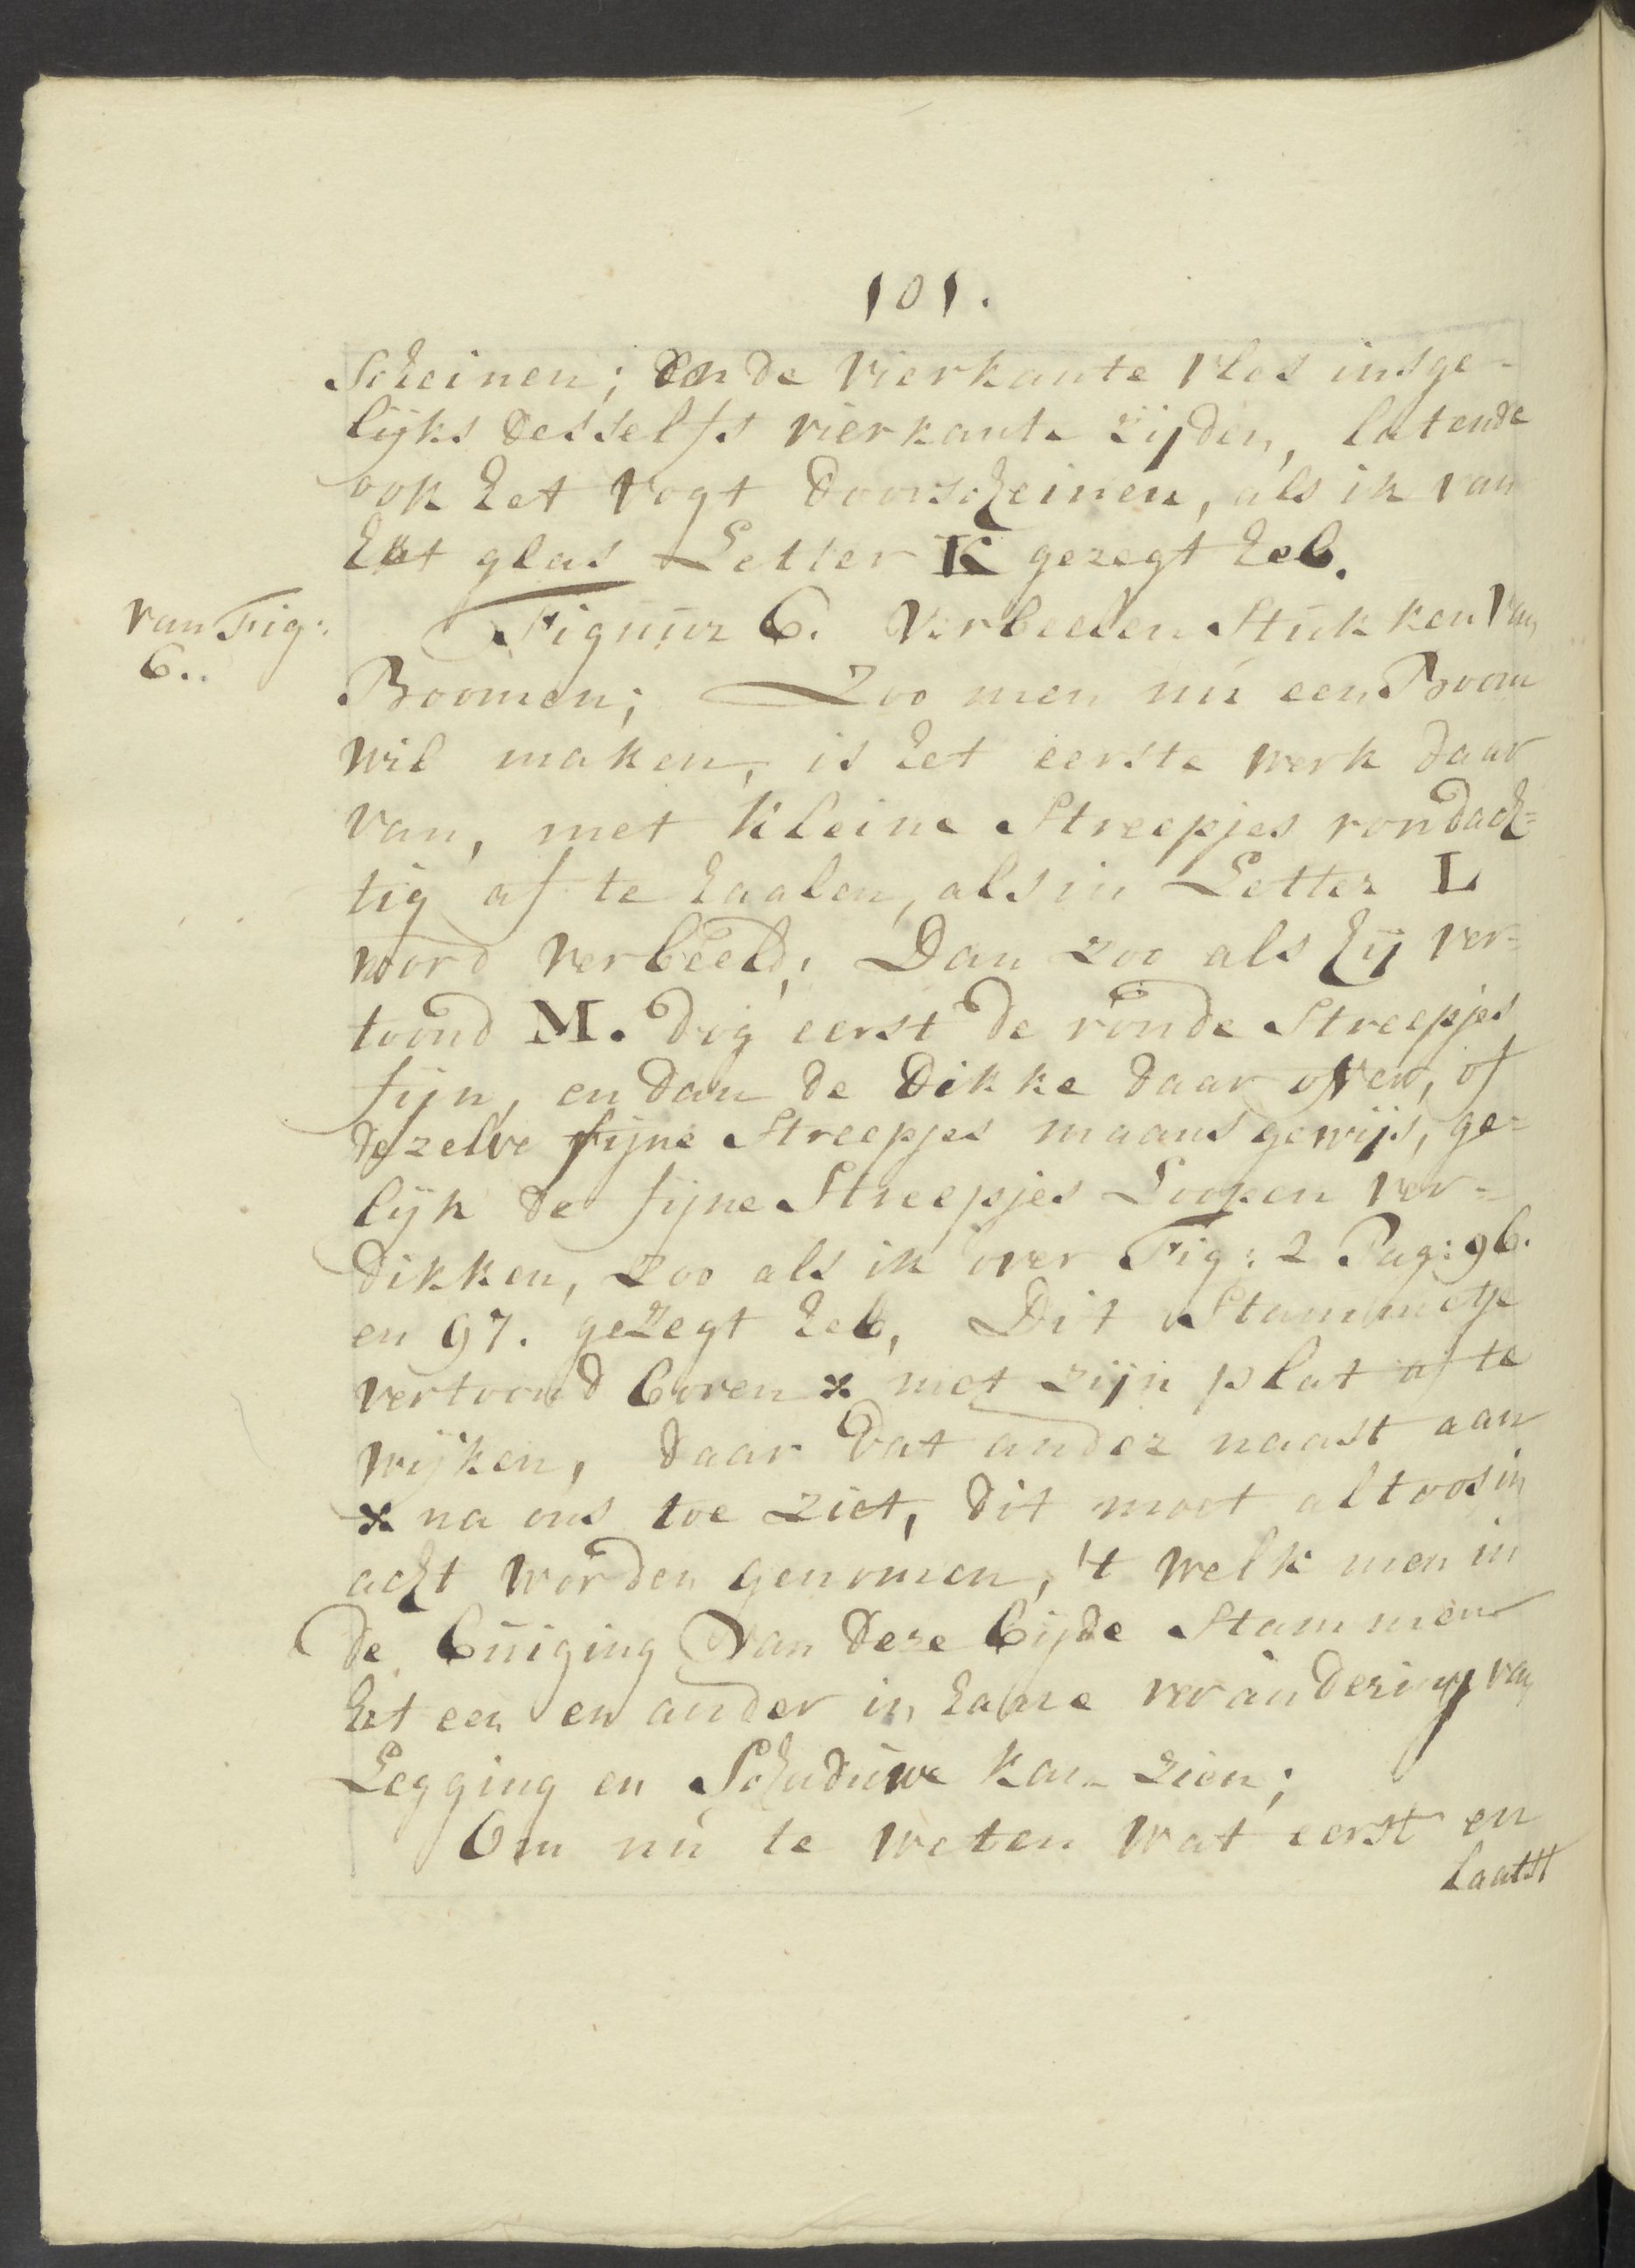 101.
Scheinen; en de vierkante vles insge-
lijks desselfs vierkante zijden, latende
ook het vogt doorscheinen, als ik van
het glas Letter K gezegt heb.
van Fig:
6..
Figuur 6. Verbeelen Stukken van
Boomen; Zoo men nu een Boom
wil maken, is het eerste werk daar
van, met kleine Streepjes rondach=
tig af te haalen, als in Letter L
word verbeeld; Dan zoo als hij ver=
toond M. dog eerst de ronde Streepjes
fijn, en dan de dikke daar over, of
dezelve fijne Streepjes maans gewijs, ge=
lijk de fijne Streepjes Loopen ver=
dikken, zoo als ik over Fig: 2 Pag: 96.
en 97. gezegt heb, Dit Stammetje
vertoond boven * met zijn plat af te
wijken, daar dat ander naast aan
* na ons toe ziet, dit moet altoos in
acht worden genomen, 't welk men in
de buiging van deze bijde Stammen
het een en ander in hare verandering van
Legging en Schaduwe kan zien;
Om nu te weten wat eerst en
laatst